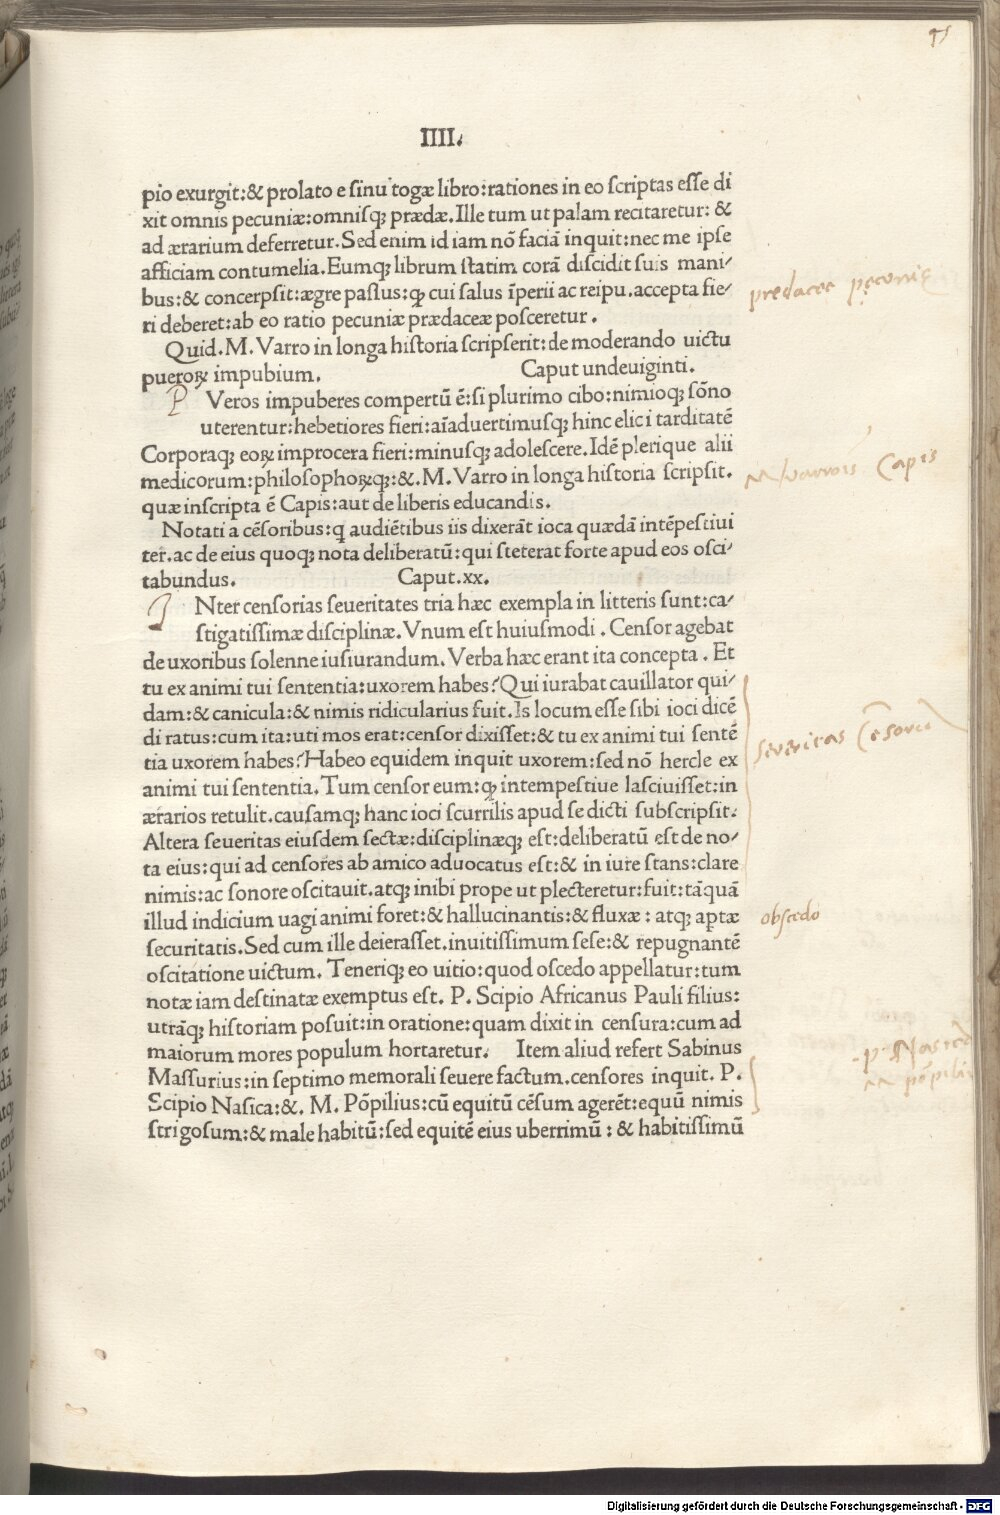 95
IIII.
pio exurgit:& prolato e sinu togæ libro:rationes in eo scriptas esse di
xit omnis pecuniæ:omnisqꝫ prædæ.Ille tum ut palam recitaretur: &
ad ærarium deferretur.Sed enim id iam nõ faciã inquit:nec me ipse
afficiam contumelia.Eumqꝫ librum statim corã discidit suis mani⸗
bus:& concerpsit:ægre passus:ꝙ cui salus ĩperii ac reipu.accepta fie⸗
ri deberet:ab eo ratio pecuniæ prædaceæ posceretur.
predaceę pęcunię
Quid.M.Varro in longa historia scripserit:de moderando uictu
pueroꝝ impubium. Caput undeuiginti.
P Veros impuberes compertũ ẽ:si plurimo cibo:nimioqꝫ sõno
uterentur:hebetiores fieri:aĩaduertimusqꝫ hinc elici tarditatẽ
Corporaqꝫ eoꝝ improcera fieri:minusqꝫ adolescere.Idẽ plerique alii
medicorum:philosophoꝝqꝫ:&.M.Varro in longa historia scripsit.
quæ inscripta ẽ Capis:aut de liberis educandis.
M Varrois Capis
Notati a cẽsoribus:q audiẽtibus iis dixerãt ioca quædã intẽpestiui
ter.ac de eius quoqꝫ nota deliberatũ:qui steterat forte apud eos osci⸗
tabundus. Caput.xx.
I Nter censorias seueritates tria hæc exempla in litteris sunt:ca⸗
stigatissimæ disciplinæ.Vnum est huiusmodi.Censor agebat
de uxoribus solenne iusiurandum.Verba hæc erant ita concepta.Et
tu ex animi tui sententia:uxorem habes?Qui iurabat cauillator qui⸗
dam:& canicula:& nimis ridicularius fuit.Is locum esse sibi ioci dicẽ
di ratus:cum ita:uti mos erat:censor dixisset:& tu ex animi tui sentẽ
tia uxorem habes?Habeo equidem inquit uxorem:sed nõ hercle ex
animi tui sententia.Tum censor eum:ꝙ intempestiue lasciuisset:in
ærarios retulit.causamqꝫ hanc ioci scurrilis apud se dicti subscripsit.
severitas Cẽsoru
Altera seueritas eiusdem sectæ:disciplinæqꝫ est:deliberatũ est de no⸗
ta eius:qui ad censores ab amico aduocatus est:& in iure stans:clare
nimis:ac sonore oscitauit.atqꝫ inibi prope ut plecteretur:fuit:tãquã
illud indicium uagi animi foret:& hallucinantis:& fluxæ: atqꝫ aptæ
securitatis.Sed cum ille deierasset.inuitissimum sese:& repugnantẽ
oscitatione uictum. Teneriqꝫ eo uitio:quod oscedo appellatur:tum
obscedo
notæ iam destinatæ exemptus est. P. Scipio Africanus Pauli filius:
utrãqꝫ historiam posuit:in oratione:quam dixit in censura:cum ad
maiorum mores populum hortaretur. Item aliud refert Sabinus
Massurius:in septimo memorali seuere factum.censores inquit. P.
Scipio Nasica:&. M. Põpilius:cũ equitũ cẽsum agerẽt:equũ nimis
strigosum:& male habitũ:sed equitẽ eius uberrimũ: & habitissimũ
P Nasica
M põpili
Digitalisierung gefördert durch die Deutsche Forschungsgemeinschaft - DFG